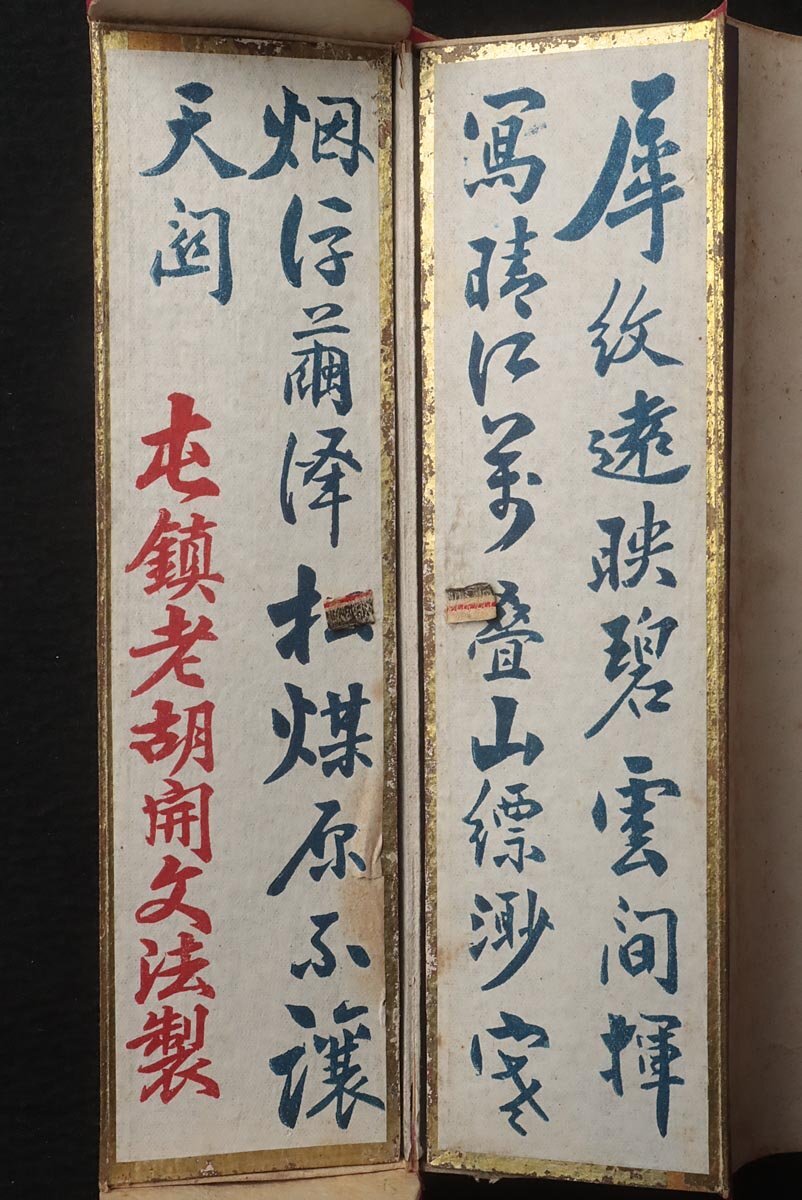 犀紋遠映碧雲間揮
寫晴江萬叠山縹渺寒
烟浮繭澤松煤原不讓
天關
屯鎮老胡開文法製